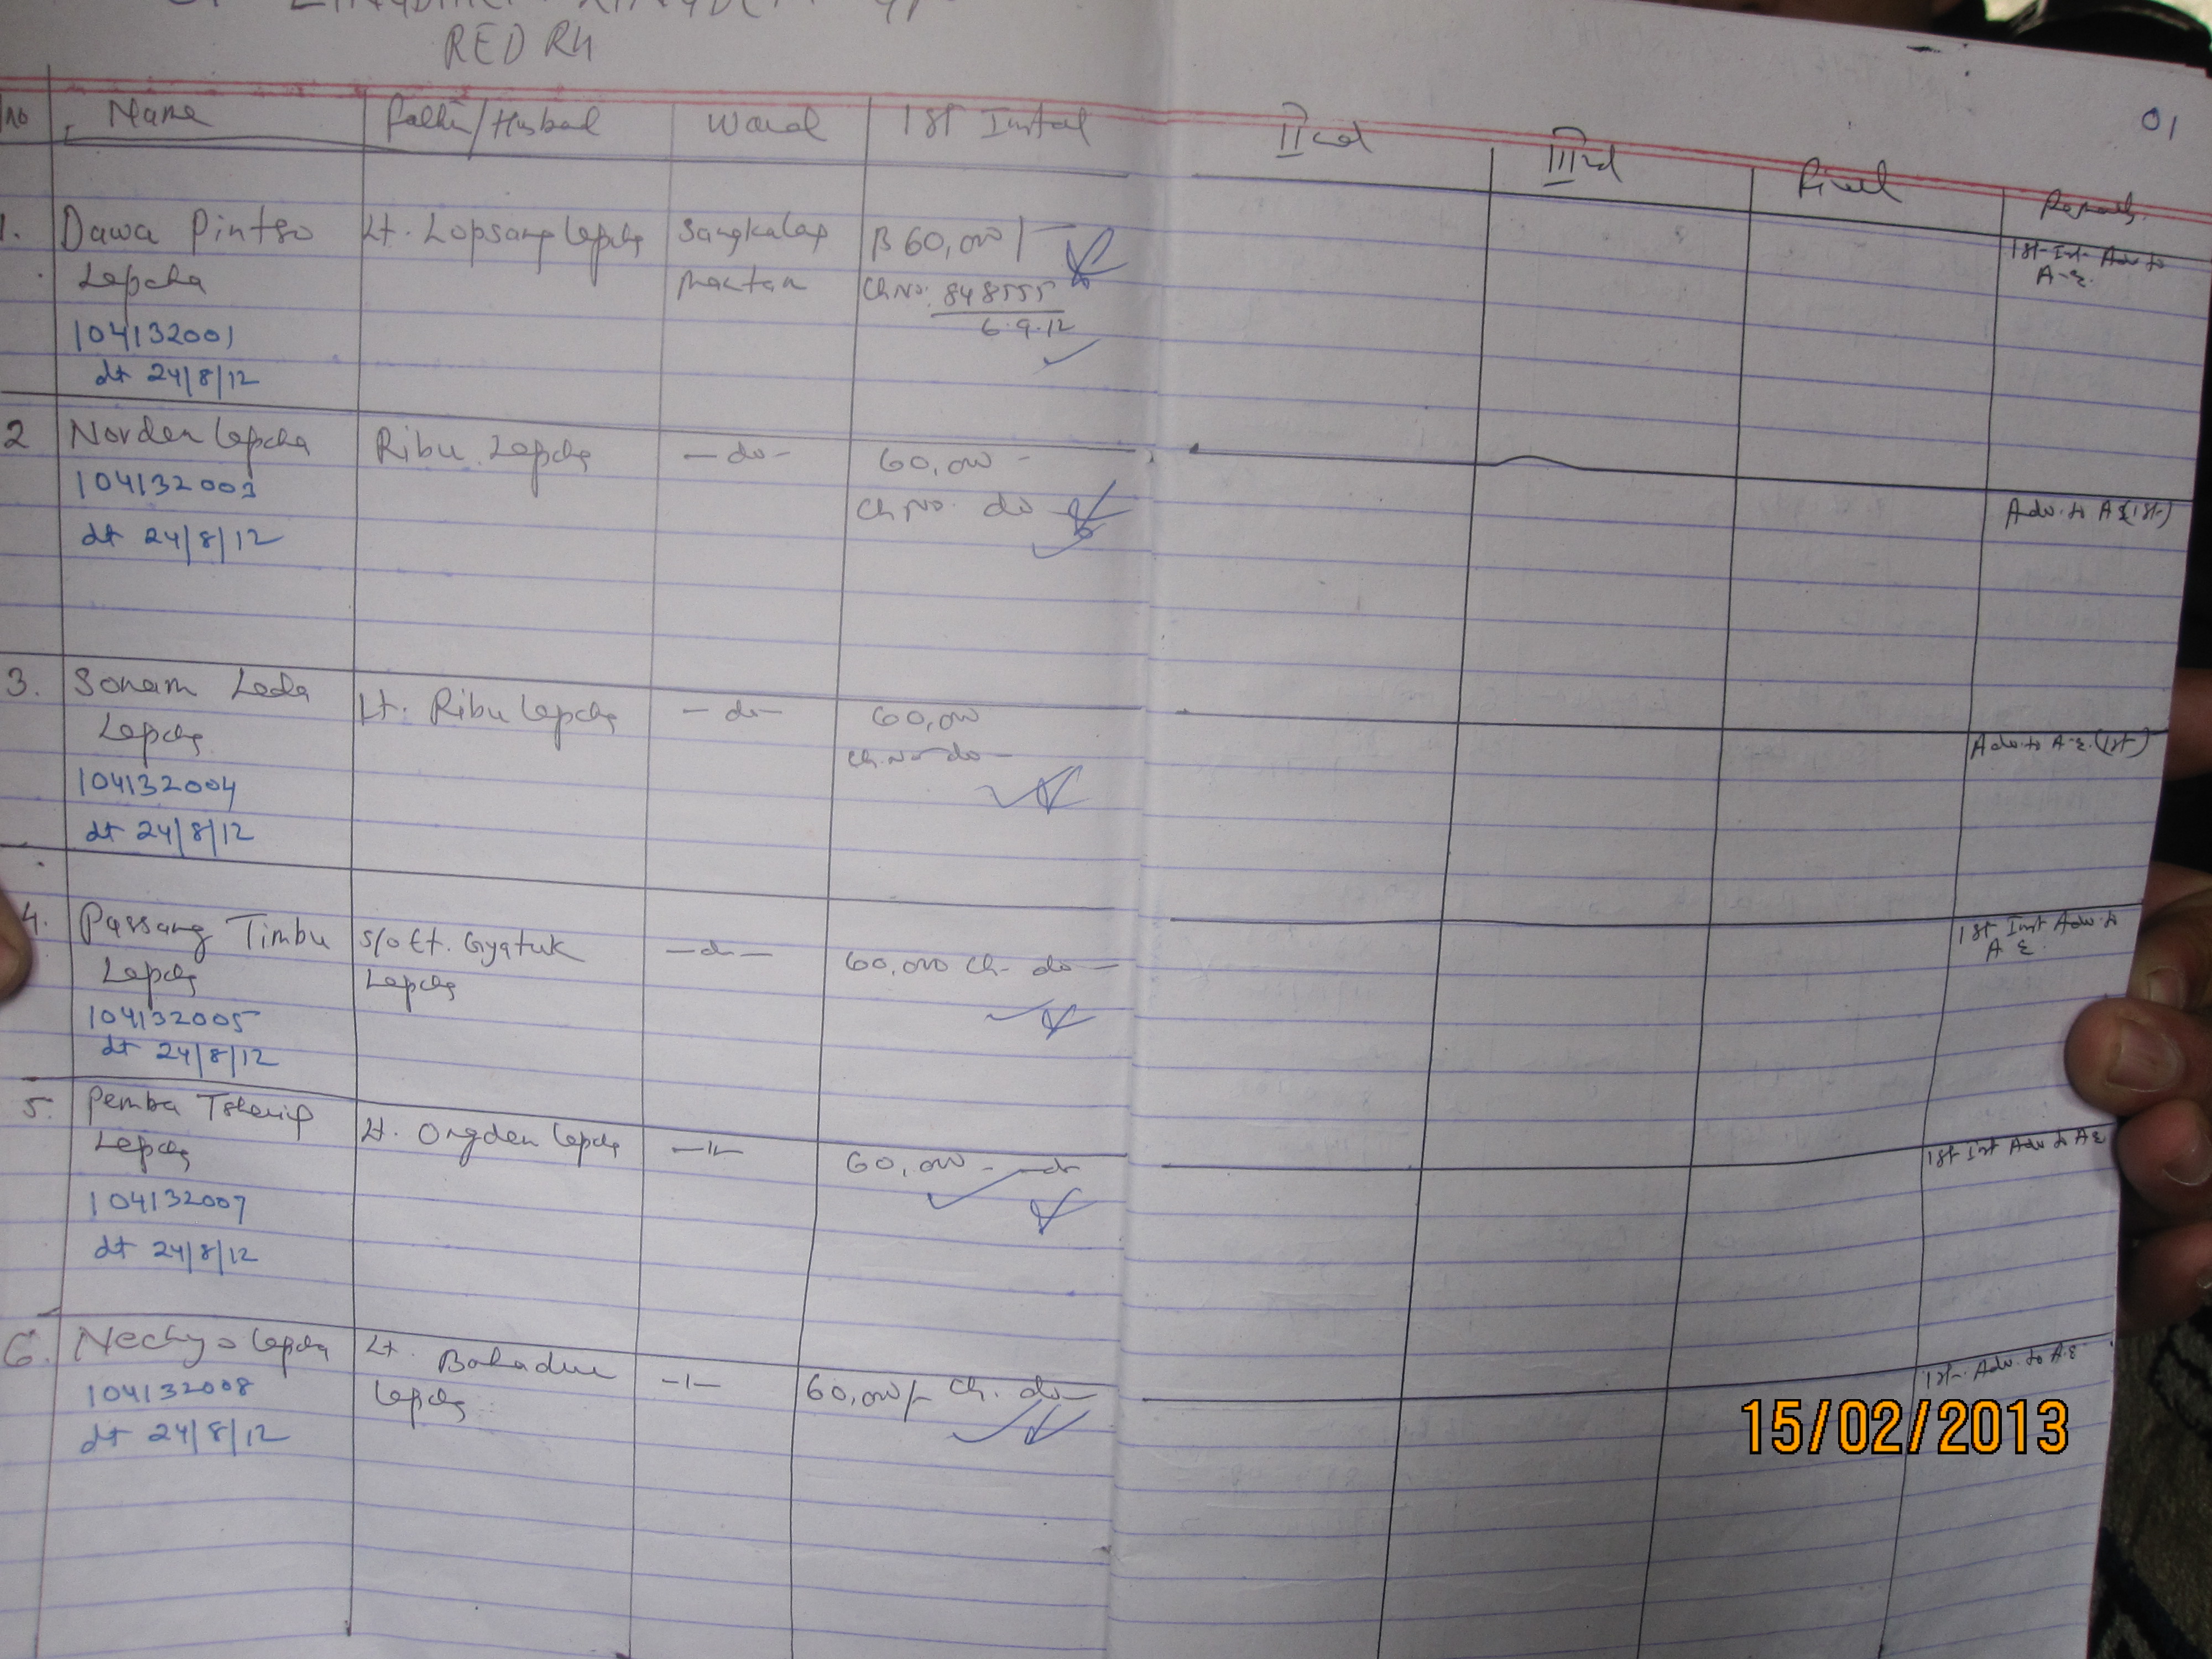 RED RH
no Name Father/Husband Ward 1st Instal IInd IIIrd Final Remarks.
01
1. Dawa Pintso Lt. Lopsang Lepcha Sangkalap ₨ 60,000/- 1st Inst Adv to
Lepcha maktan Ch No. 848555 A-E.
104132001 6.9.12
dt 24/8/12
2 Norden Lepcha Ribu Lepcha -do- 60,000 -
104132003 Ch No. do Adv. to AE (1st)
dt 24/8/12
3. Sonam Lepcha Lt. Ribu Lepcha -do- 60,000
Lepcha Ch. No do - Adv. to A-E. (1st)
104132004
dt 24/8/12
4. Passang Timbu S/o Lt. Gyatuk -do- 60,000 Ch. do - 1st Inst Adv to
Lepcha Lepcha A E.
104132005
dt 24/8/12
5. Pemba Tshering Lt. Ongden Lepcha -11- 60,000 - do 1st Inst Adv to AE
Lepcha
104132007
dt 24/8/12
6. Lepcha Lt. Bahadur -1- 60,000/- Ch. do - 1st. Adv. to A.E
104132008 Lepcha
dt 24/8/12
15/02/2013